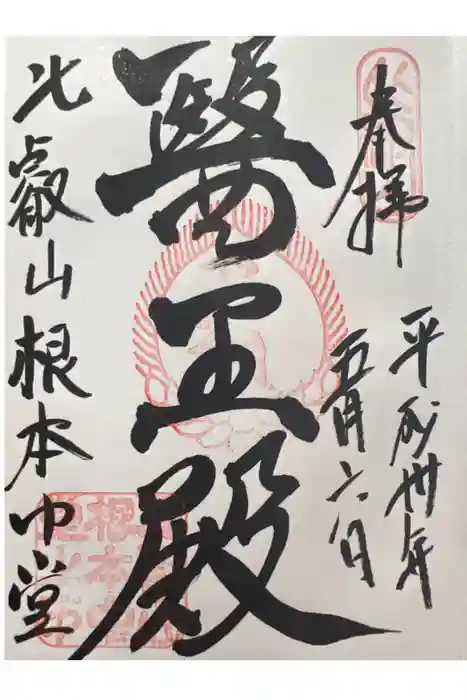 奉拝
平成卅年
五月六日
醫王殿
比叡山根本中堂